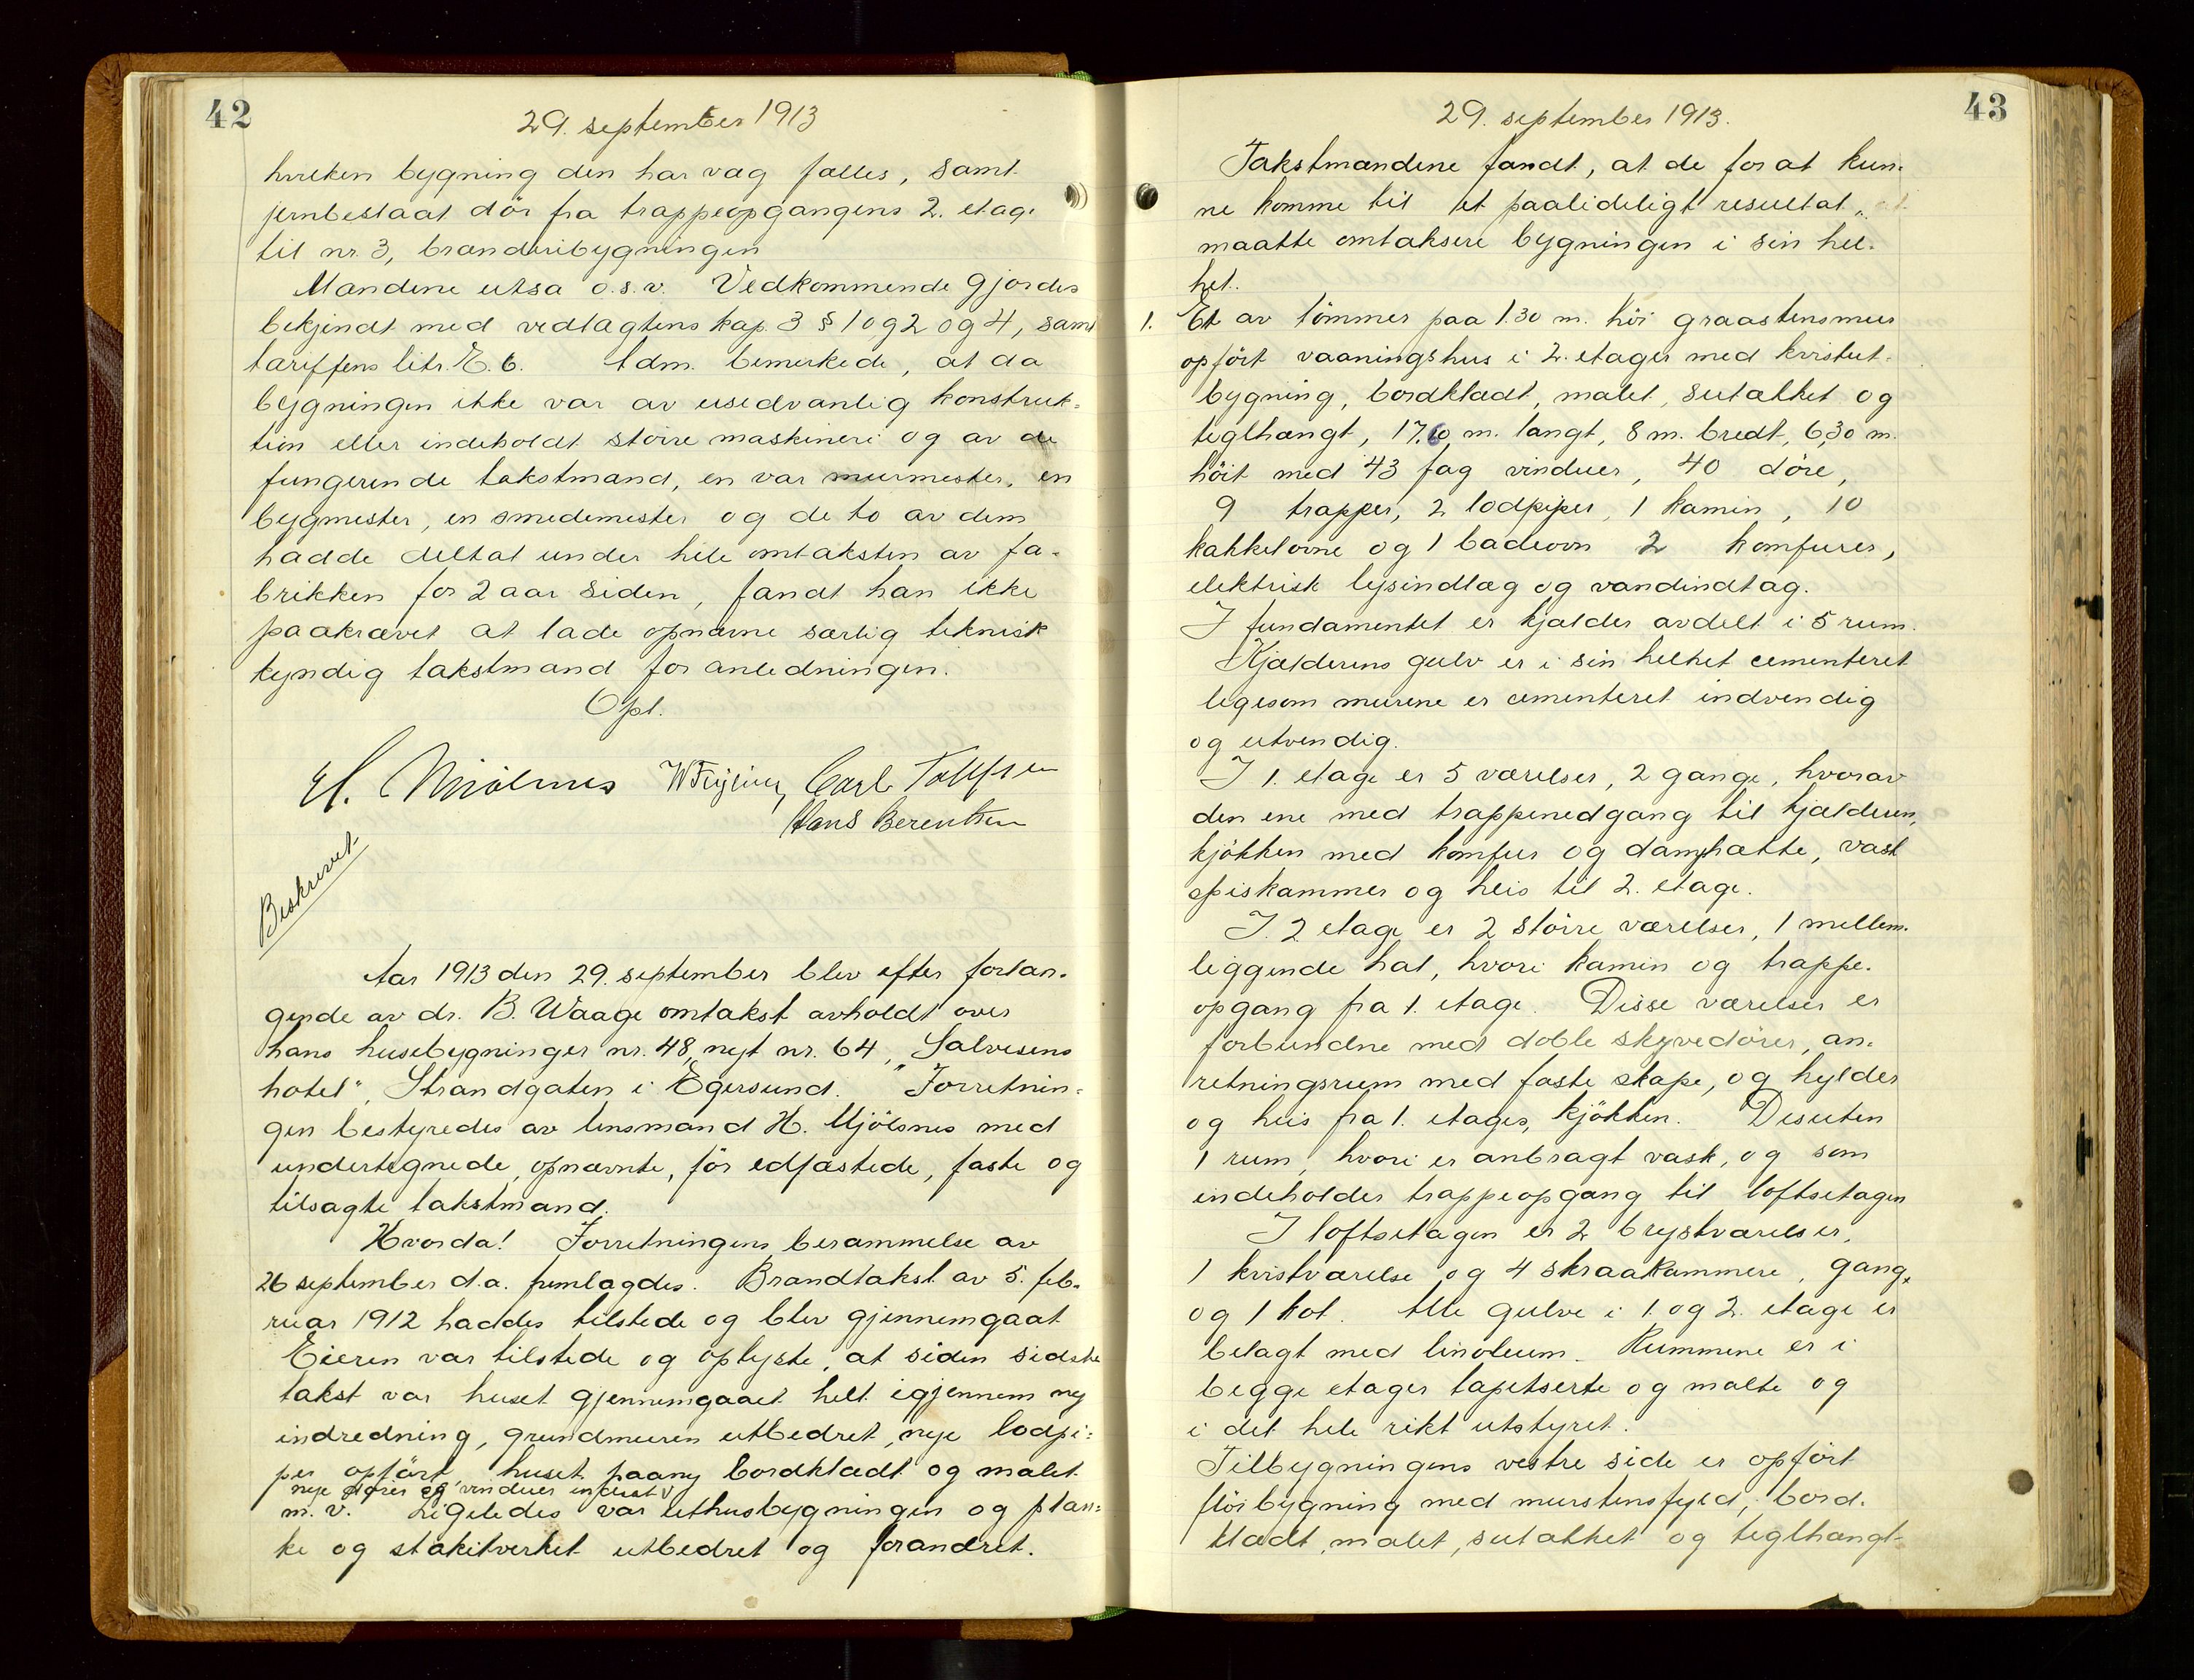 42
29. september 1913
hvilken bygning den har væg fælles, samt
jernbeslaat dör fra trappeopgangens 2. etage
til nr. 3, brænderibygningen
Mændene utsa o.s.v. Vedkommende gjordes
bekjendt med vedtagtens kap. 3 § 1 og 2 og 4, samt
tariffens litr. E. 6. Adm. bemerkede, at da
bygningen ikke var av usedvanlig konstruk-
tion eller indeholdt större maskineri og av de
fungerende takstmænd, en var murmester, en
bygmester, en smedemester og de to av dem
hadde deltat under hele omtaksten av fa-
brikken for 2 aar siden, fandt han ikke
paakrævet at lade opnævne særlig teknisk
kyndig takstmænd for anledningen.
Opl.
H. Mjölsnes Carl Tollefsen
Hans Berentsen
Beskrevet
Aar 1913 den 29. september blev efter forlan-
gende av dr. B. Waage omtakst avholdt over
hans husebygninger nr. 48, nyt nr. 64, "Salvesens
hotel", Strandgaten i Egersund. Forretnin-
gen bestyredes av lensmand H. Mjölsnes med
undertegnede, opnævnte, för edfæstede, faste og
tilsagte takstmænd.
Hvorda! Forretningens berammelse av
26 september d.a. fremlagdes. Brandtakst av 5. feb-
ruar 1912 haddes tilstede og blev gjennemgaat
Eieren var tilstede og oplyste, at siden sidste
takst var huset gjennemgaaet helt igjennem ny
indredning, grundmuren utbedret, nye lodpi-
per opfört, huset paany bordklædt og malet
nye dører og vinduer indsat
m. v. Ligeledes var uthusbygningen og plan-
ke og stakitverket utbedret og forandret.
43
29. september 1913.
Takstmændene fandt, at de for at kun-
ne komme til et paalideligt resultat,
maatte omtaksere bygningen i sin hel-
het.
1. Et av tömmer paa 1.30 m. höi graastensmur
opfört vaaningshus i 2. etager med kvistut-
bygning, bordklædt, malet, sutækket og
teglhængt, 17.60 m. langt, 8 m. bredt, 6,30 m.
höit med 43 fag vinduer, 40 döre,
9 trapper, 2 lodpiper, 1 kamin, 10
kakkelovne og 1 badeovn 2 komfurer,
elektrisk lysindlæg og vandindtag.
I fundamentet er kjælder avdelt i 5 rum.
Kjælderens gulv er i sin helhet cementeret
ligesom murene er cementeret indvendig
og utvendig.
I 1. etage er 5 værelser, 2 gange, hvorav
den ene med trappenedgang til kjælderen,
kjökken med komfur og damphætte, vask
spiskammer og heis til 2. etage.
I. 2 etage er 2 större værelser, 1 mellem-
liggende hal, hvori kamin og trappe-
opgang fra 1. etage. Disse værelser er
forbundne med doble skyvedörer, an-
retningsrum med faste skape, og hylder
og heis fra 1. etages, kjökken. Desuten
1 rum, hvori er anbragt vask, og som
indeholder trappeopgang til loftsetagen
I loftsetagen er 2 brystværelser,
1 kvistværelse og 4 skraakammere, gang,
og 1 kot. Alle gulve i 1. og 2. etage er
belagt med linoleum. Rummene er i
begge etager tapetserte og malte og
i det hele rikt utstyret.
Tilbygningens vestre side er opfört
flöibygning med murstensfyld, bord-
klædt, malet, sutækket og teglhængt